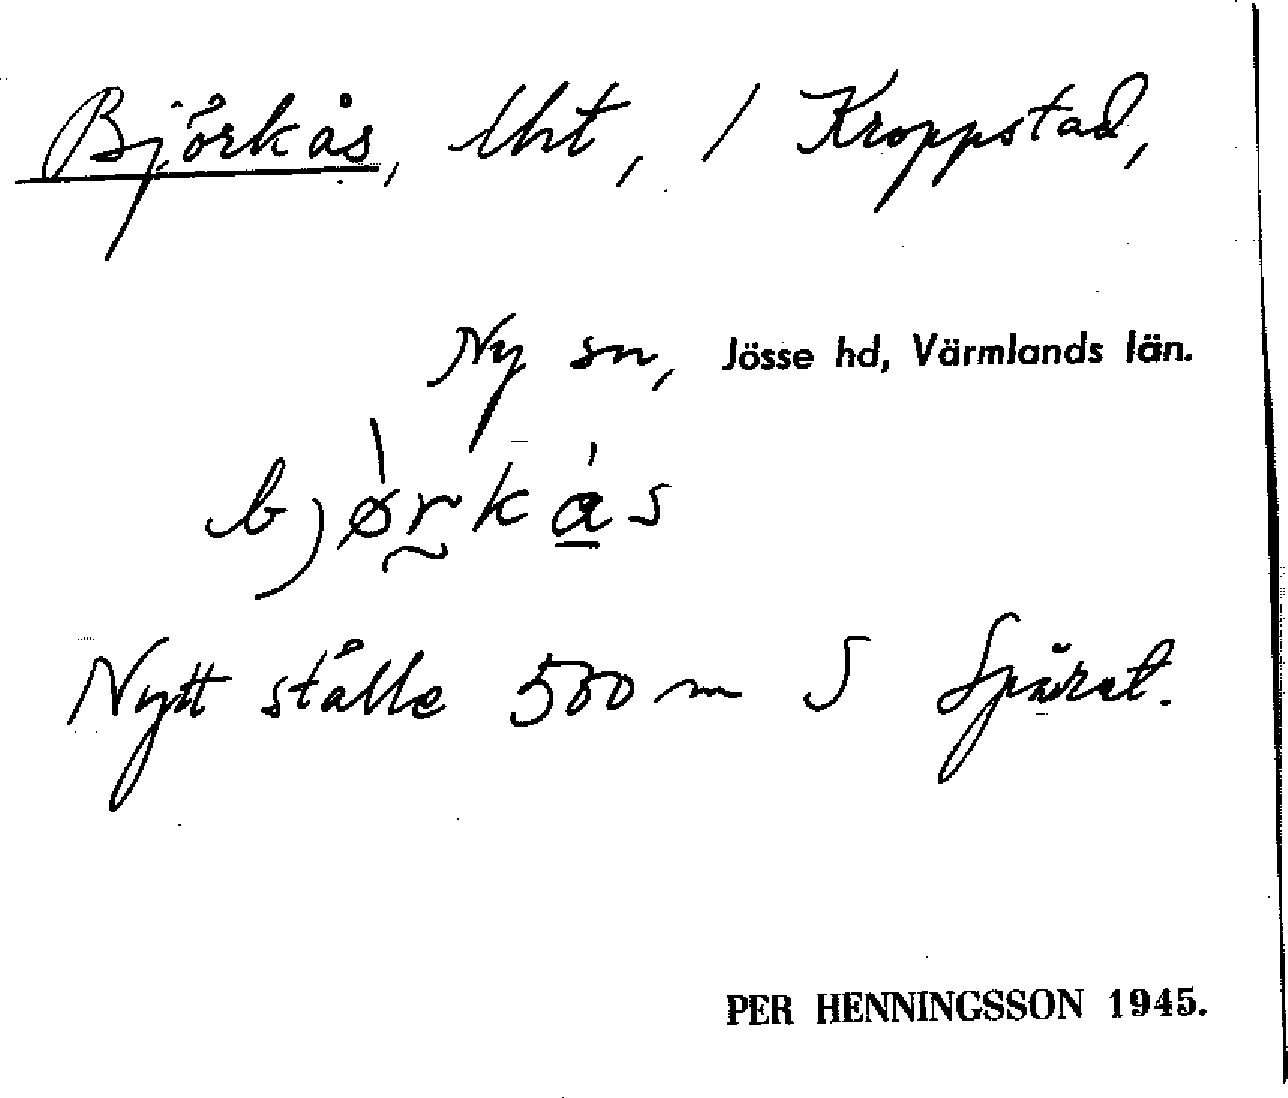 Björkås, lht, / Kroppstad,
Ny sn, Jösse hd, Värmlands län.
bjø̀r̰ká̱s
Nytt ställe 500 m S Spåret.
PER HENNINGSSON 1945.